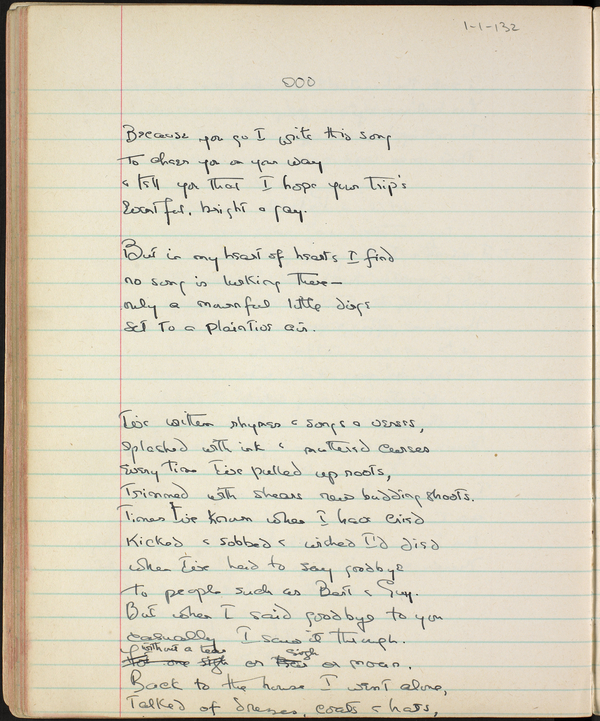 1-1-132
000
Because you go I write this song
To cheer you on your way
& tell you that I hope your trip's
Eventful, bright & gay.
But in my heart of hearts I find
no song is lurking there—
only a mournful little dirge
set to a plaintive air.
I've written rhymes & songs & verses,
Splashed with ink & muttered curses
Every time I've pulled up roots,
Trimmed with shears new budding shoots.
Times I've known when I have cried
Kicked & sobbed & wished I'd died
when I've had to say goodbye
to people such as Bart & Guy.
But when I said goodbye to you
casually I saw it through.
without a tear single
Not one sigh or tear or moan.
Back to the house I went alone,
Talked of dresses, coats & hats,